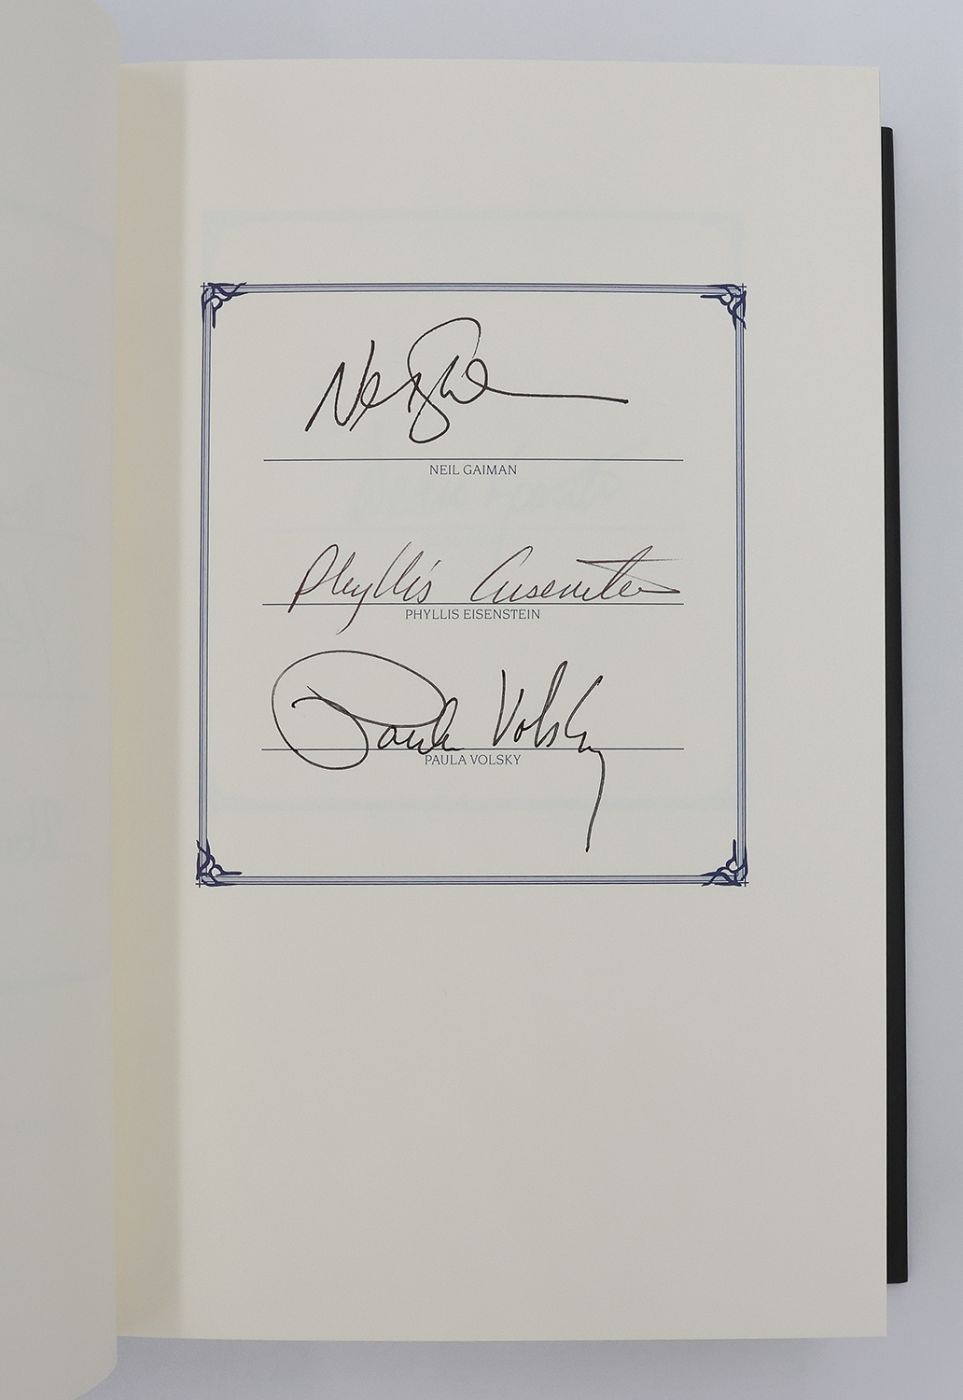 Neil Gaiman
NEIL GAIMAN
Phyllis Eisenstein
PHYLLIS EISENSTEIN
Paula Volsky
PAULA VOLSKY